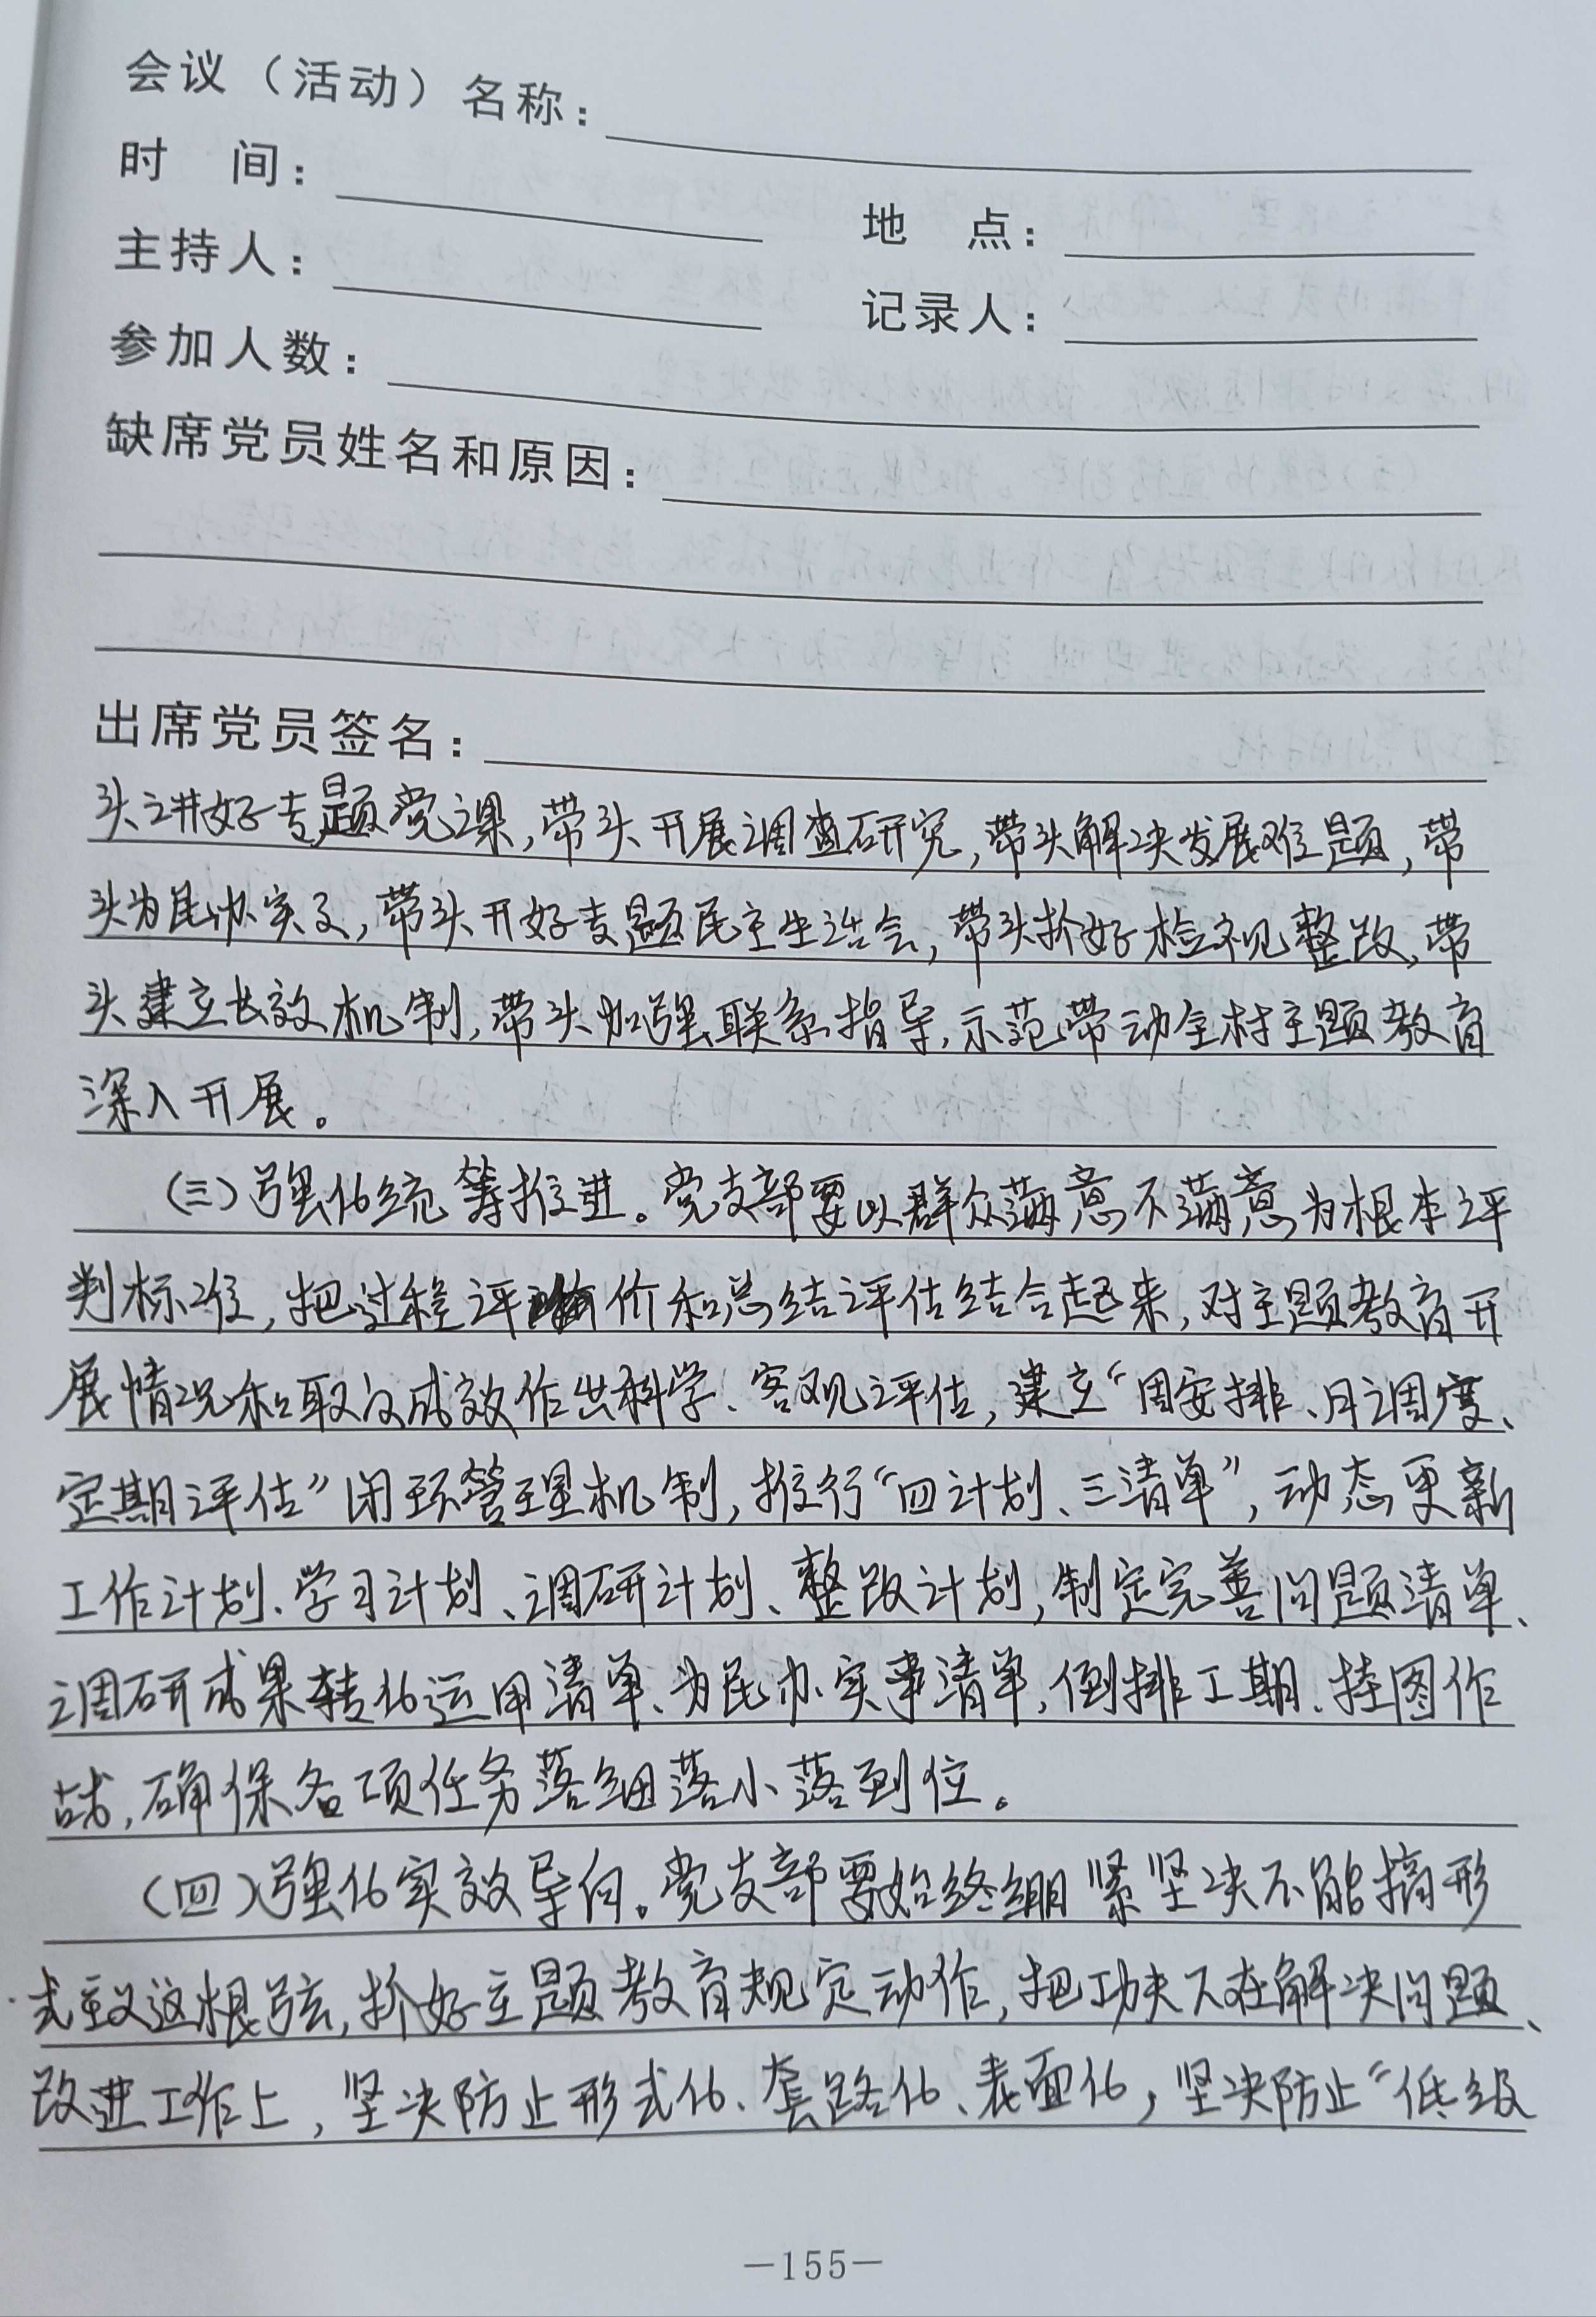 会议（活动）名称：
时 间：
地 点：
主持人：
记录人：
参加人数：
缺席党员姓名和原因：
出席党员签名：
头讲好专题党课，带头开展调查研究，带头解决发展难题，带
头为民办实事，带头开好专题民主生活会，带头抓好检视整改，带
头建立长效机制，带头加强联系指导，示范带动全村主题教育
深入开展。
（三）强化统筹推进。党支部要以群众满意不满意为根本评
判标准，把过程评价和总结评估结合起来，对主题教育开
展情况和取得成效作出科学、客观评估，建立“周安排、月调度、
定期评估”闭环管理机制，推行“四计划、三清单”，动态更新
工作计划、学习计划、调研计划、整改计划，制定完善问题清单、
调研成果转化运用清单、为民办实事清单，倒排工期、挂图作
战，确保各项任务落细落小落到位。
（四）强化实效导向。党支部要始终绷紧坚决不能搞形
式主义这根弦，抓好主题教育规定动作，把功夫下在解决问题、
改进工作上，坚决防止形式化、套路化、表面化，坚决防止“低级
—155—